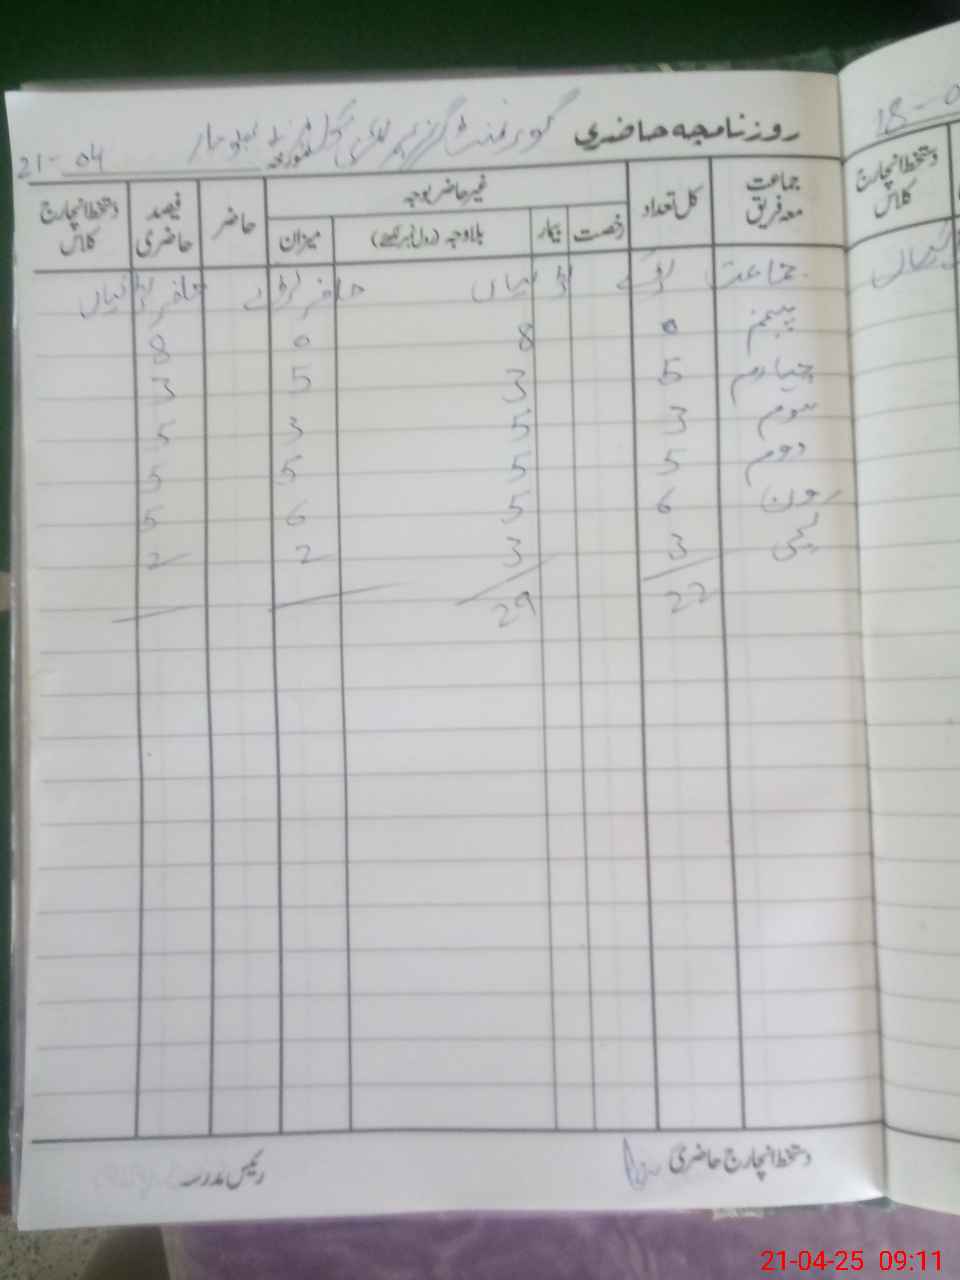 روزنامچہ حاضری گورنمنٹ گرلز پرائمری سکول
مورخہ 21-04
18-0
جماعت معہ فریق کل تعداد غیر حاضر بوجہ حاضر فیصد حاضری دستخط انچارج کلاس
رخصت بیمار بلاوجہ (رول نمبر لکھئے) میزان
دستخط انچارج کلاس
جماعت لڑکے لڑکیاں حاضر لڑکے حاضر لڑکیاں
پنجم 0 8 0 8
چہارم 5 3 5 3
سوم 3 5 3 5
دوم 5 5 5 5
6 5 6 5
کچی 3 3 2 2
22 29
دستخط انچارج حاضری رئیس مدرسہ
21-04-25 09:11